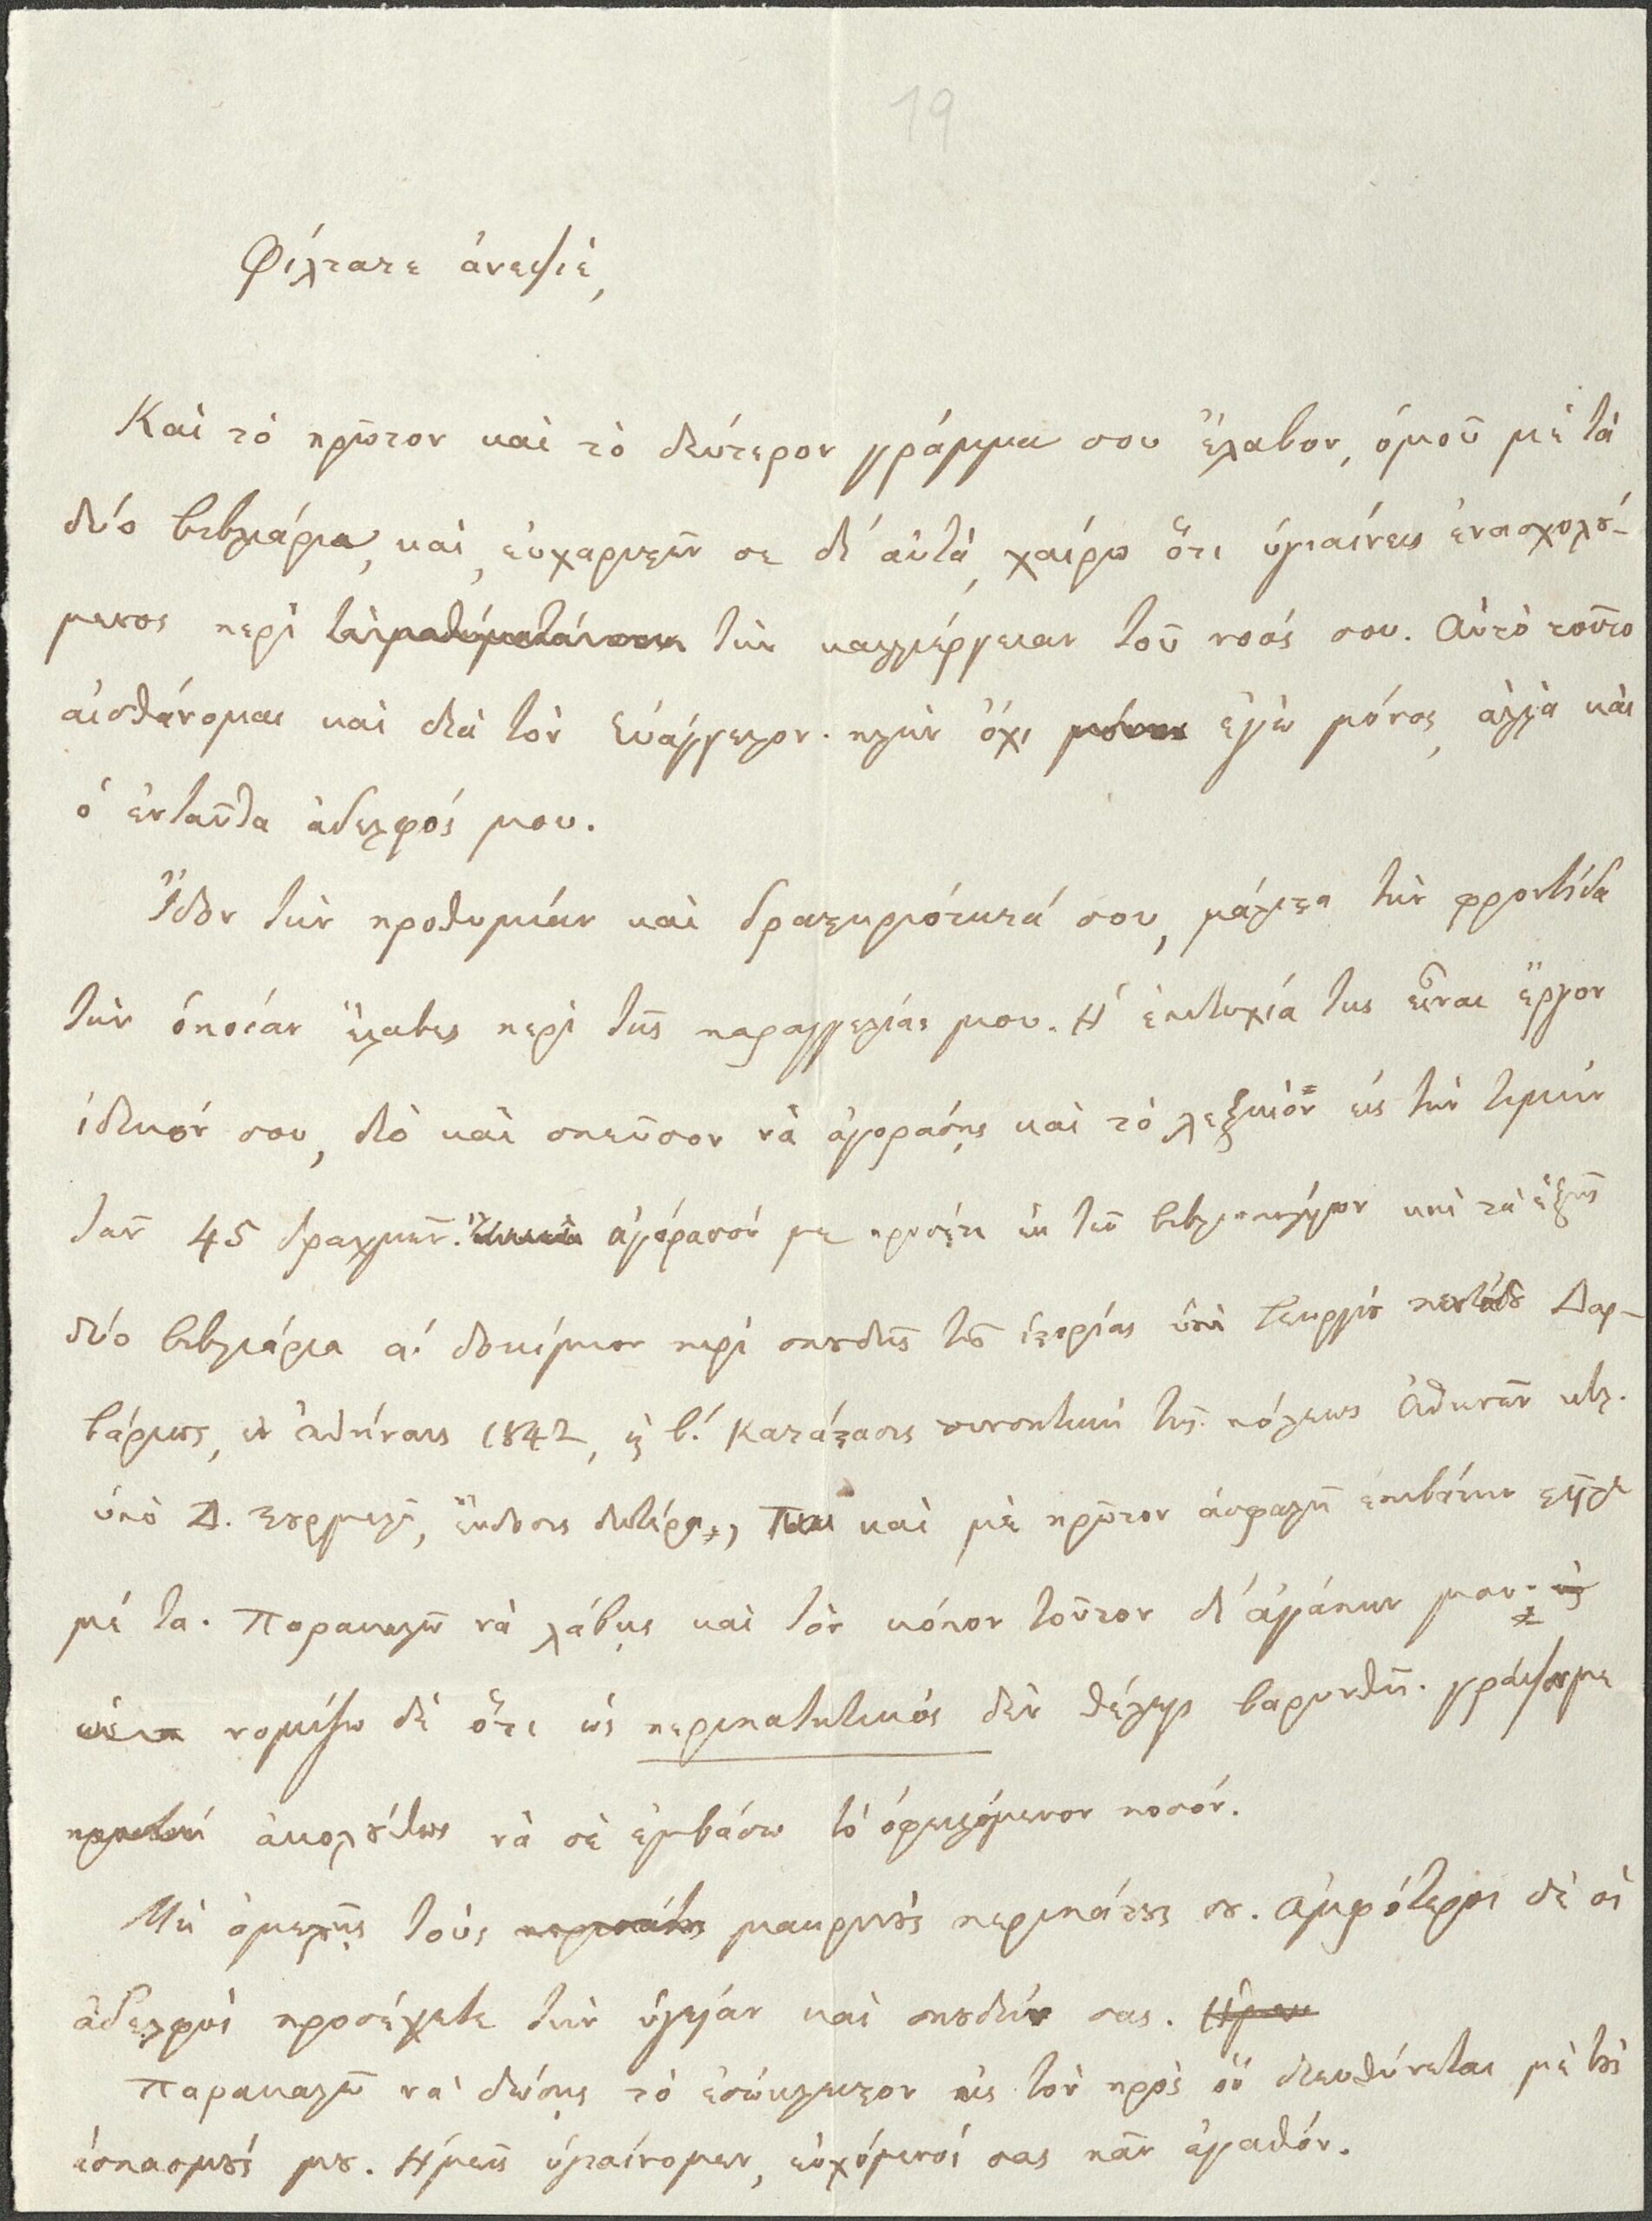 19
Φίλτατε ἀνεψιὲ,
Καὶ τὸ πρῶτον καὶ τὸ δεύτερον γράμμα σου ἔλαβον, ὁμοῦ μὲ τὰ
δύο βιβλιάρια, καὶ, εὐχαριστῶν σε δι' αὐτὰ, χαίρω ὅτι ὑγιαίνεις ἐνασχολού-
μενος περὶ τὰ μαθήματά σου τὴν καλλιέργειαν τοῦ νοός σου. Αὐτὸ τοῦτο
αἰσθάνομαι καὶ διὰ τὸν Εὐάγγελον· πλὴν ὄχι μόνος ἐγὼ μόνος, ἀλλὰ καὶ
ὁ ἐνταῦθα ἀδελφός μου.
Ἴδον τὴν προθυμίαν καὶ δραστηριότητά σου, μάλιστα τὴν φροντίδα
τὴν ὁποίαν ἔλαβες περὶ τῆς παραγγελίας μου. Ἡ ἐπιτυχία της εἶναι ἔργον
ἰδικόν σου, διὸ καὶ σπεῦσον νὰ ἀγοράσῃς καὶ τὸ λεξικὸν εἰς τὴν τιμὴν
τῶν 45 δραχμῶν. ἀγόρασόν με προσέτι ἐκ τῶν βιβλιοπωλείων καὶ τὰ ἑξῆς
δύο βιβλιάρια α΄. δοκίμιον περὶ σπουδῆς τῆς ἱστορίας ὑπὸ Γεωργίου Δαρ-
βάρεως, ἐν Ἀθήναις 1842, ϗ β΄. Κατάστασις συνοπτικὴ τῆς πόλεως Ἀθηνῶν κτλ.
ὑπὸ Δ. Σουρμελῆ, ἔκδοσις δευτέρα, καὶ μὲ πρῶτον ἀσφαλῆ ἐπιβάτην στεῖλέ
μέ τα. Παρακαλῶ νὰ λάβῃς καὶ τὸν κόπον τοῦτον δι' ἀγάπην μου·
νομίζω δὲ ὅτι ὡς περιπατητικὸς δὲν θέλεις βαρυνθῆ. γράψον με
ἀκολούθως νὰ σὲ ἐμβάσω τὸ ὀφειλόμενον ποσόν.
Μὴ ἀμελῇς τοὺς περιπάτους μακρινοὺς περιπάτους σου. Ἀμφότεροι δὲ οἱ
ἀδελφοὶ προσέχετε τὴν ὑγείαν καὶ σπουδήν σας.
Παρακαλῶ νὰ δώσῃς τὸ ἐσώκλειστον εἰς τὸν πρὸς ὃν διευθύνεται μὲ τοὺς
ἀσπασμούς μου. Ἡμεῖς ὑγιαίνομεν, εὐχόμενοί σας πᾶν ἀγαθόν.